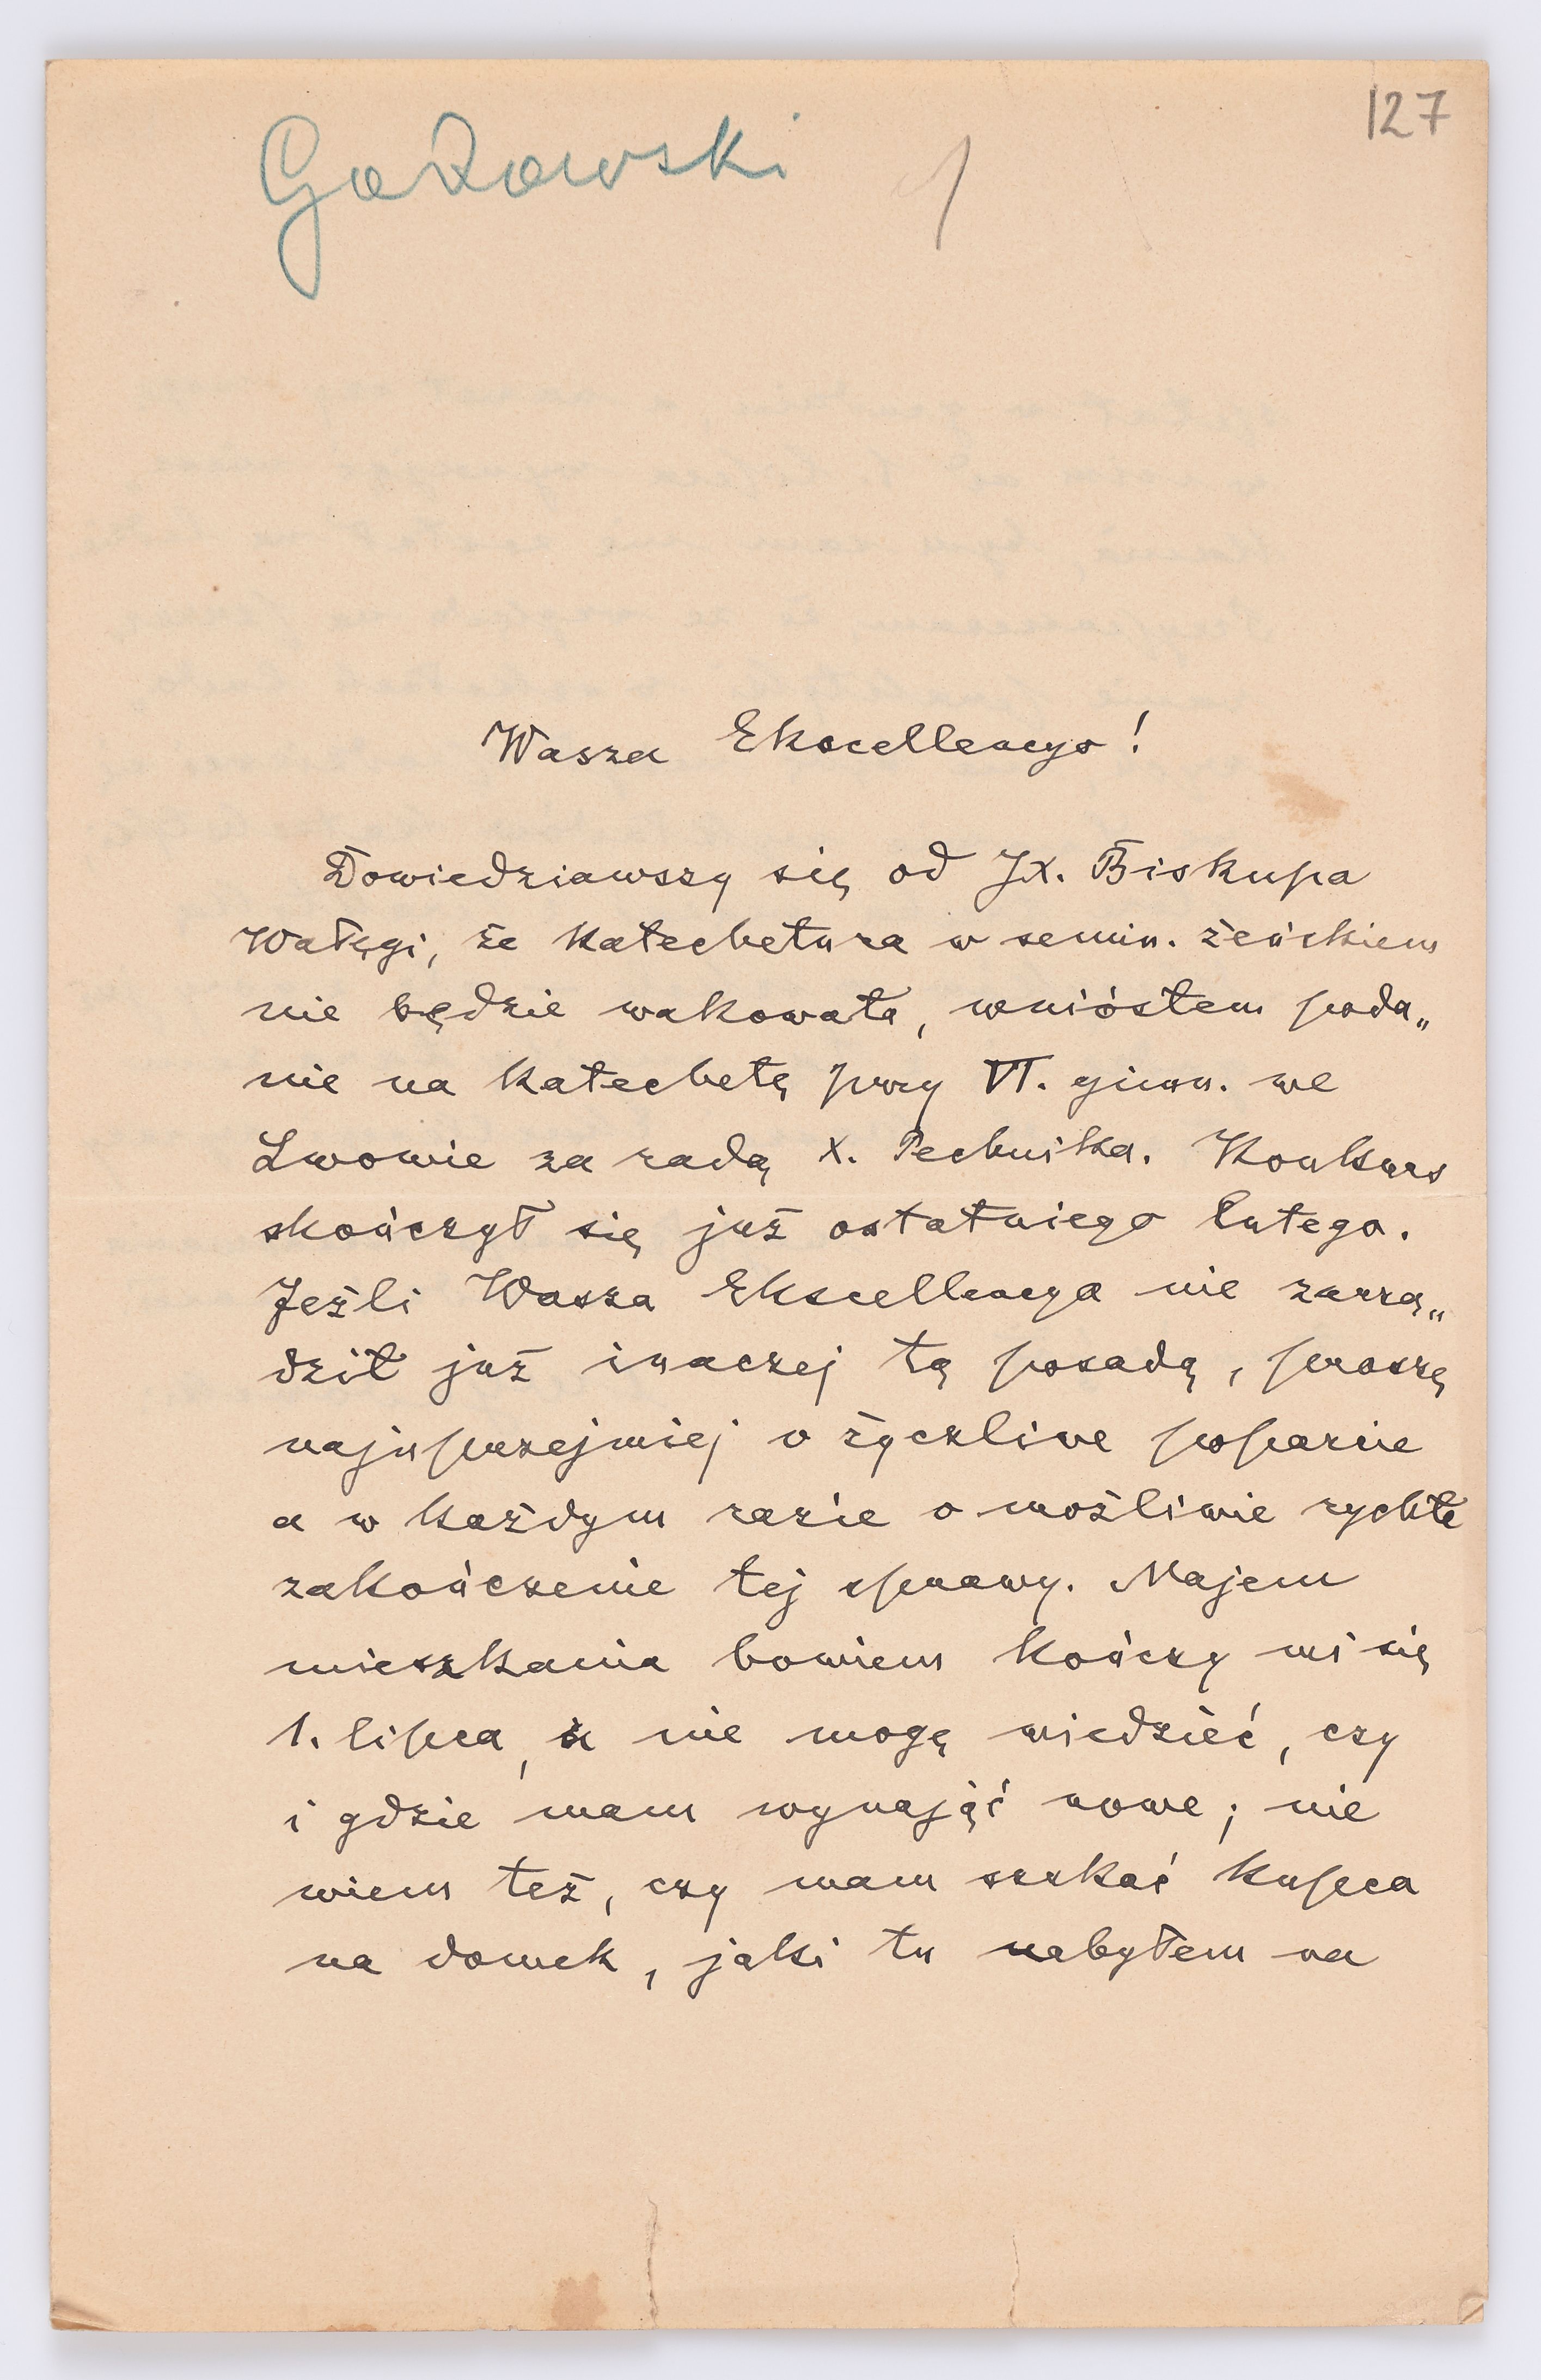 127
Gadowski
Wasza Ekscellencyo!
Dowiedziawszy się od JX. Biskupa
Wałęgi, że katechetura w semin. żeńskiem
nie będzie wakowała, wniósłem poda„
nie na katechetę przy VI. gimn. we
Lwowie za radą X. Pechnika. Konkurs
skończył się już ostatniego lutego.
Jeżli Wasza Ekscellencya nie zarzą„
dził już inaczej tą posadą, proszę
najuprzejmiej o życzliwe poparcie
a w każdym razie o możliwie rychłe
zakończenie tej sprawy. Najem
mieszkania bowiem kończy mi się
1. lipca, a nie mogę wiedzieć, czy
i gdzie mam wynająć nowe; nie
wiem też, czy mam szukać kupca
na domek, jaki tu nabyłem na